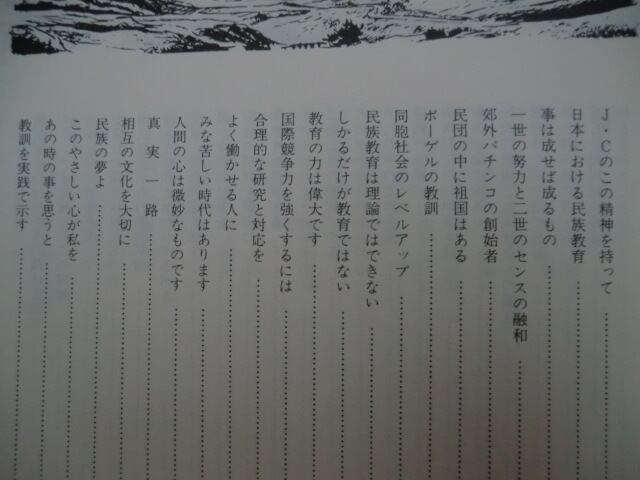 J・Cのこの精神を持って
日本における民族教育
事は成せば成るもの
一世の努力と二世のセンスの融和
郊外パチンコの創始者
民団の中に祖国はある
ボーゲルの教訓
同胞社会のレベルアップ
民族教育は理論ではできない
しかるだけが教育ではない
教育の力は偉大です
国際競争力を強くするには
合理的な研究と対応を
よく働かせる人に
みな苦しい時代はあります
人間の心は微妙なものです
真実一路
相互の文化を大切に
民族の夢よ
このやさしい心が私を
あの時の事を思うと
教訓を実践で示す